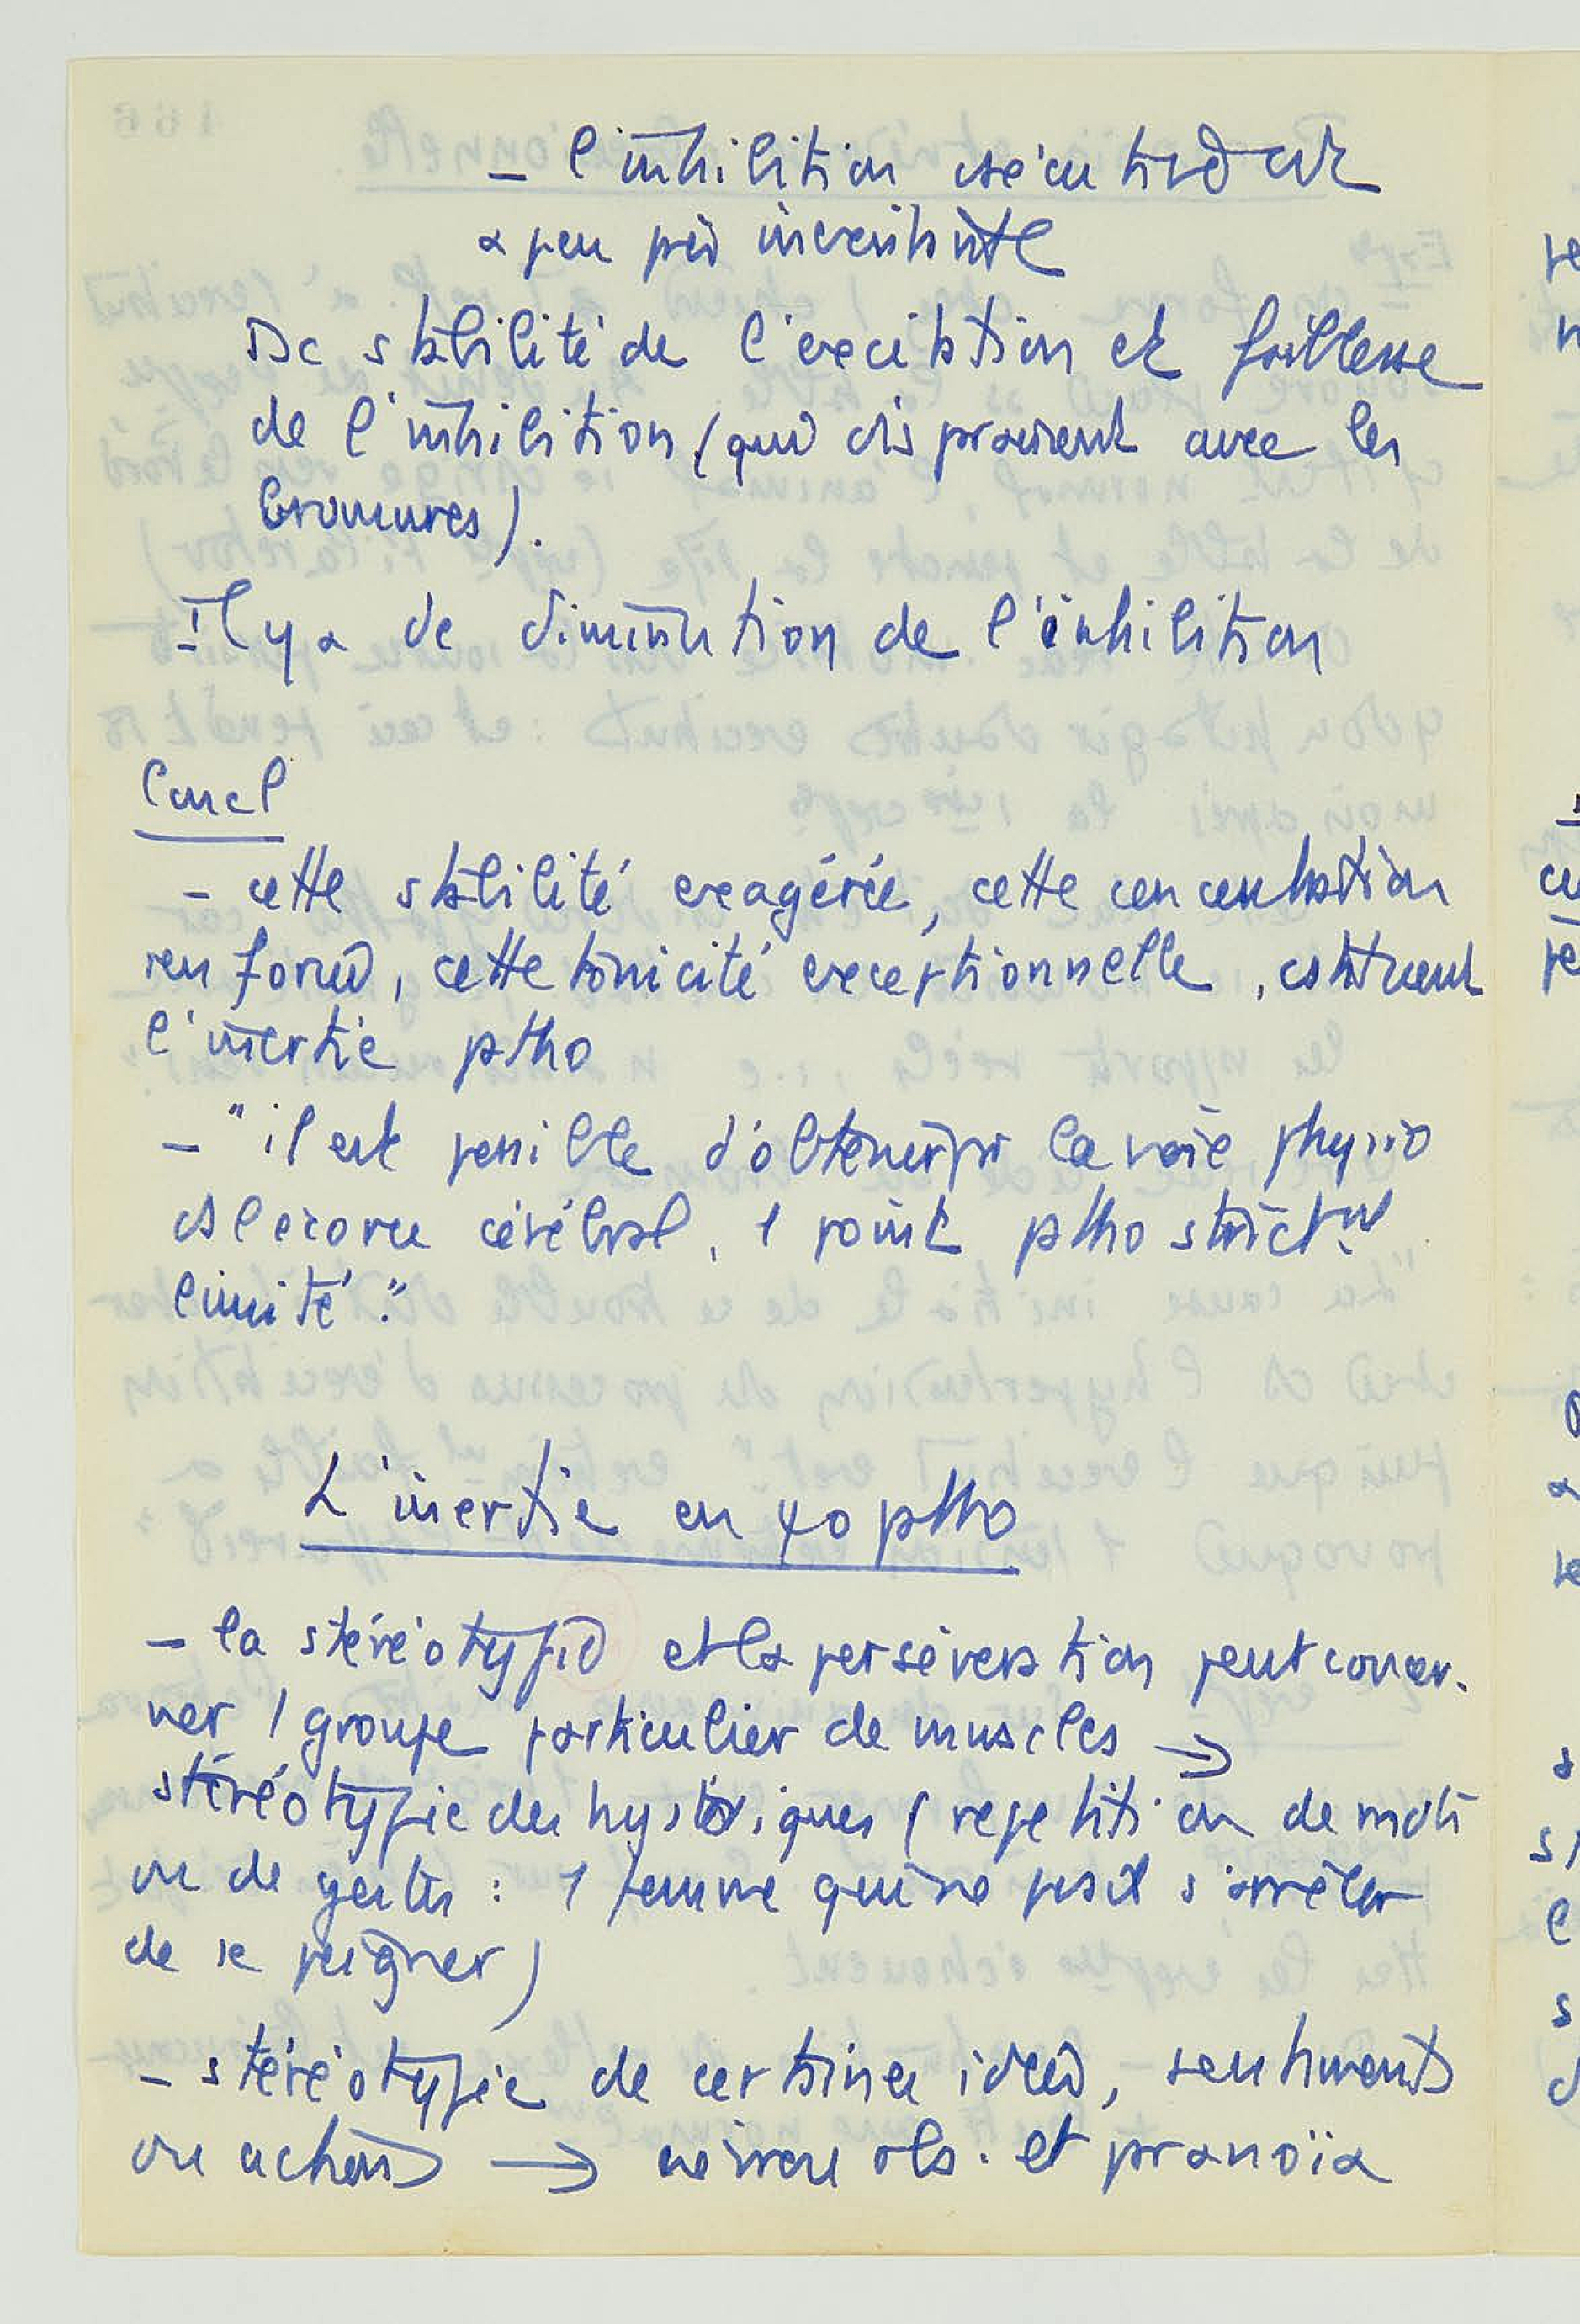 - l'inhibition
à peu près inexistante
Dc stabilité de l'excitation et faiblesse
de l'inhibition (qui disparaissent avec les
bromures).
Il y a de diminution de l'inhibition
Concl
- cette stabilité exagérée, cette concentration
renforcée, cette tonicité exceptionnelle, cstituent
l'inertie patho
- "il est possible d'obtenir par la voie physio
ds l'écorce cérébral, 1 point patho strictmt
limité".
L'inertie en ψo patho
- la stéréotypie et la persévération peut concer-
ner 1 groupe particulier de muscles →
stéréotypie des hystériques (repetition de mots
ou de gestes : 1 femme qui ne peut s'arrêter
de se peigner)
- stéréotypie de certaines idées, sentiments
ou actions → névrose obs. et paranoïa